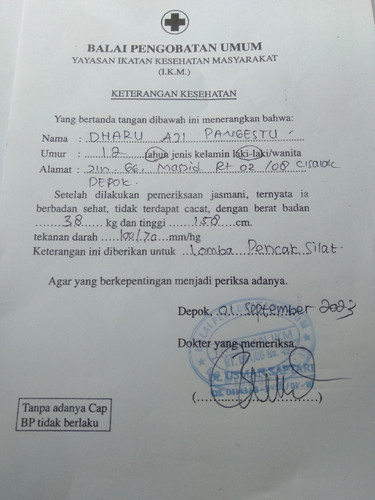 BALAI PENGOBATAN UMUM
YAYASAN IKATAN KESEHATAN MASYARAKAT
(I.K.M.)
KETERANGAN KESEHATAN
Yang bertanda tangan dibawah ini menerangkan bahwa:
Nama : DHARU AJI PANGESTU
Umur : 12 tahun jenis kelamin laki-laki/wanita
Alamat : Jln. GG. Masjid Rt 02/08 Cisalak
DEPOK.
Setelah dilakukan pemeriksaan jasmani, ternyata ia
berbadan sehat, tidak terdapat cacat, dengan berat badan
38 kg dan tinggi 150 cm.
tekanan darah 100/70 mm/hg
Keterangan ini diberikan untuk Lomba Pencak Silat.
Agar yang berkepentingan menjadi periksa adanya.
Depok, 01 September 2023
Dokter yang memeriksa,
(....................)
Tanpa adanya Cap
BP tidak berlaku